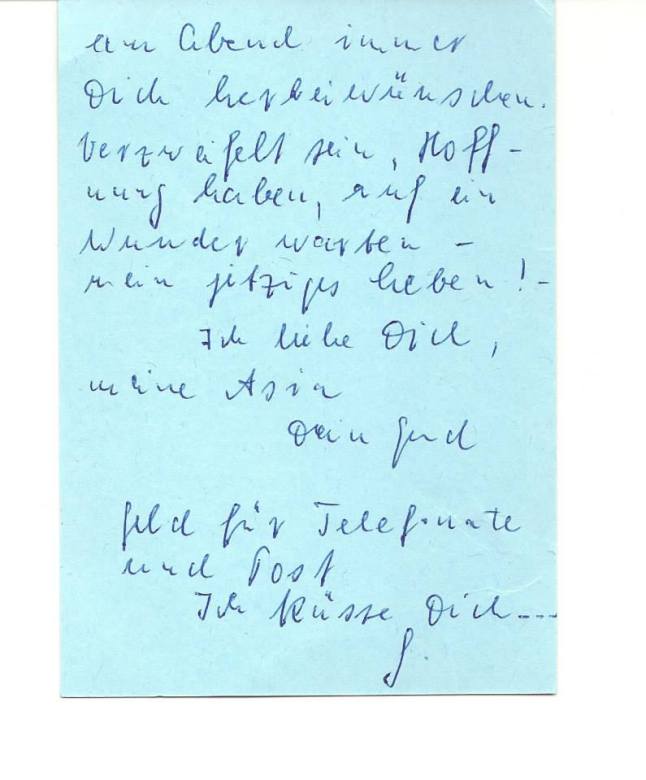 am Abend immer
Dich herbeiwünschen.
Verzweifelt sein, Hoff-
nung haben, auf ein
Wunder warten -
mein jetziges Leben! -
Ich liebe Dich,
meine Asia
Dein Gerd
Geld für Telefonate
und Post
Ich küsse Dich----
G.